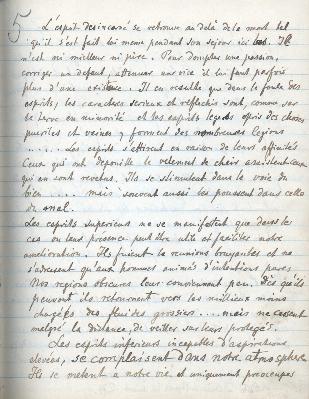 5
L'esprit desincarné se retrouve au delà de la mort tel
qu'il s'est fait lui meme pendant son sejour ici bas. Il
n'est ni meilleur ni pire. Pour dompter une passion,
corriger un defaut, attenuer une vice il lui faut parfois
plus d'une existence. Il en resulte que dans la foule des
esprits, les caracteres serieux et reflechis sont, comme sur
la terre en minorité et les esprits legers epris des choses
pueriles et vaines, forment des nombreuses legions
..... Les esprits s'attirent en raison de leurs affinités
Ceux qui ont depouillé le vetement de chair assistent ceux
qui en sont revetus. Ils se stimulent dans la voie du
bien ..... mais souvent aussi les poussent dans celle
du mal.
Les esprits superieurs ne se manifestent que dans les
cas ou leur presence peut être utile et faciliter notre
amelioration. Ils fuient les reunions bruyantes et ne
s'adressent qu'aux hommes animés d'intentions pures.
Nos regions obscures leur conviennent peu. Dès qu'ils
peuvent ils retournent vers les millieux moins
chargés des fluides grossiers .... mais ne cessent
malgré la distance, de veiller sur leurs protegés.
Les esprits inferieurs incapables d'aspirations
elevées, se complaisent dans notre atmosphere
Ils se melent a notre vie et uniquement preocupés